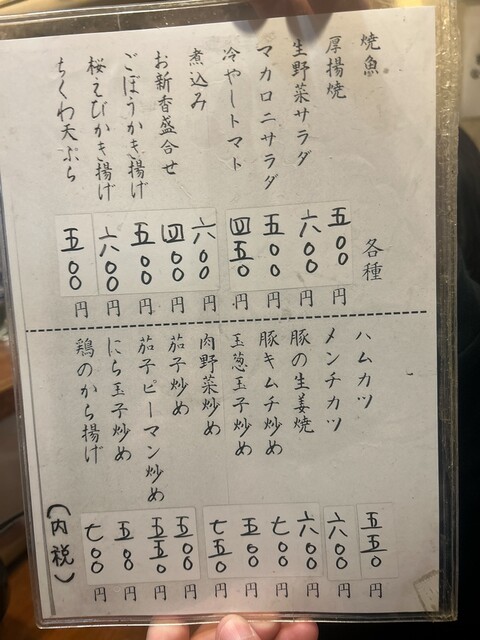 焼魚 各種
厚揚焼 五〇〇円
生野菜サラダ 六〇〇円
マカロニサラダ 五〇〇円
冷やしトマト 四五〇円
煮込み 六〇〇円
お新香盛合せ 四〇〇円
ごぼうかき揚げ 五〇〇円
桜えびかき揚げ 六〇〇円
ちくわ天ぷら 五〇〇円
ハムカツ 五五〇円
メンチカツ 六〇〇円
豚の生姜焼 六〇〇円
豚キムチ炒め 七〇〇円
玉葱玉子炒め 五〇〇円
肉野菜炒め 七五〇円
茄子炒め 五〇〇円
茄子ピーマン炒め 五五〇円
にら玉子炒め 五〇〇円
鶏のから揚げ 七〇〇円
(内税)